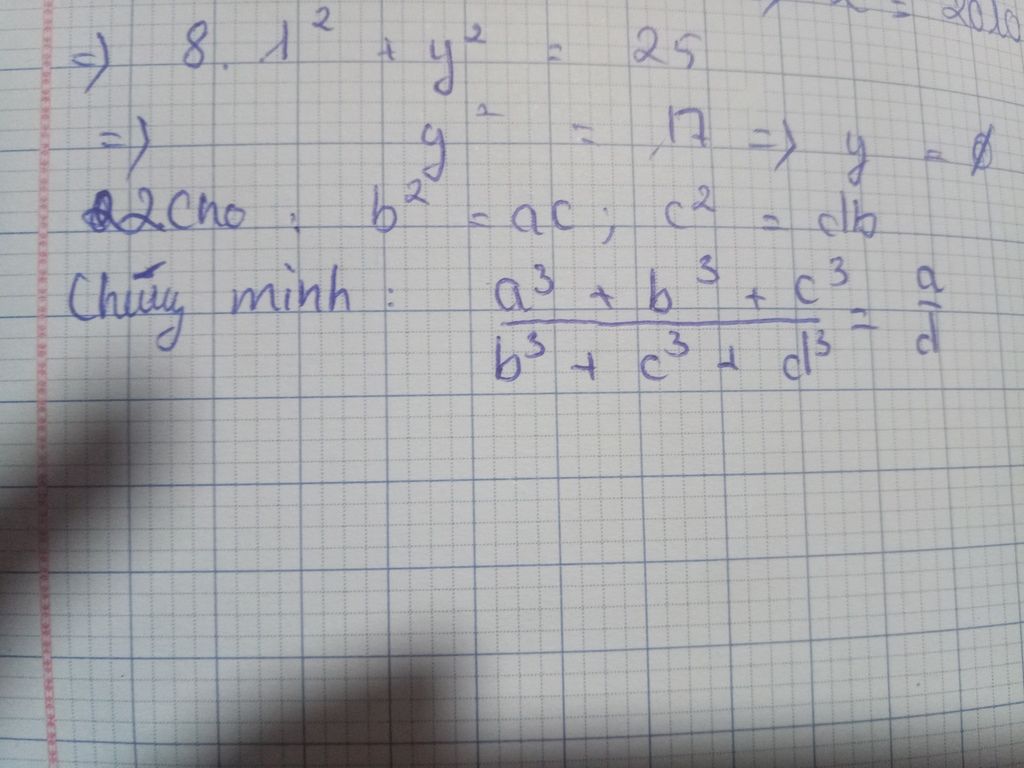 = 2010
=> 8. 1² + y² = 25
=> y² = 17 => y = ∅
2 Cho : b² = ac ; c² = db
Chứng minh : \frac{a³ + b³ + c³}{b³ + c³ + d³} = \frac{a}{d}